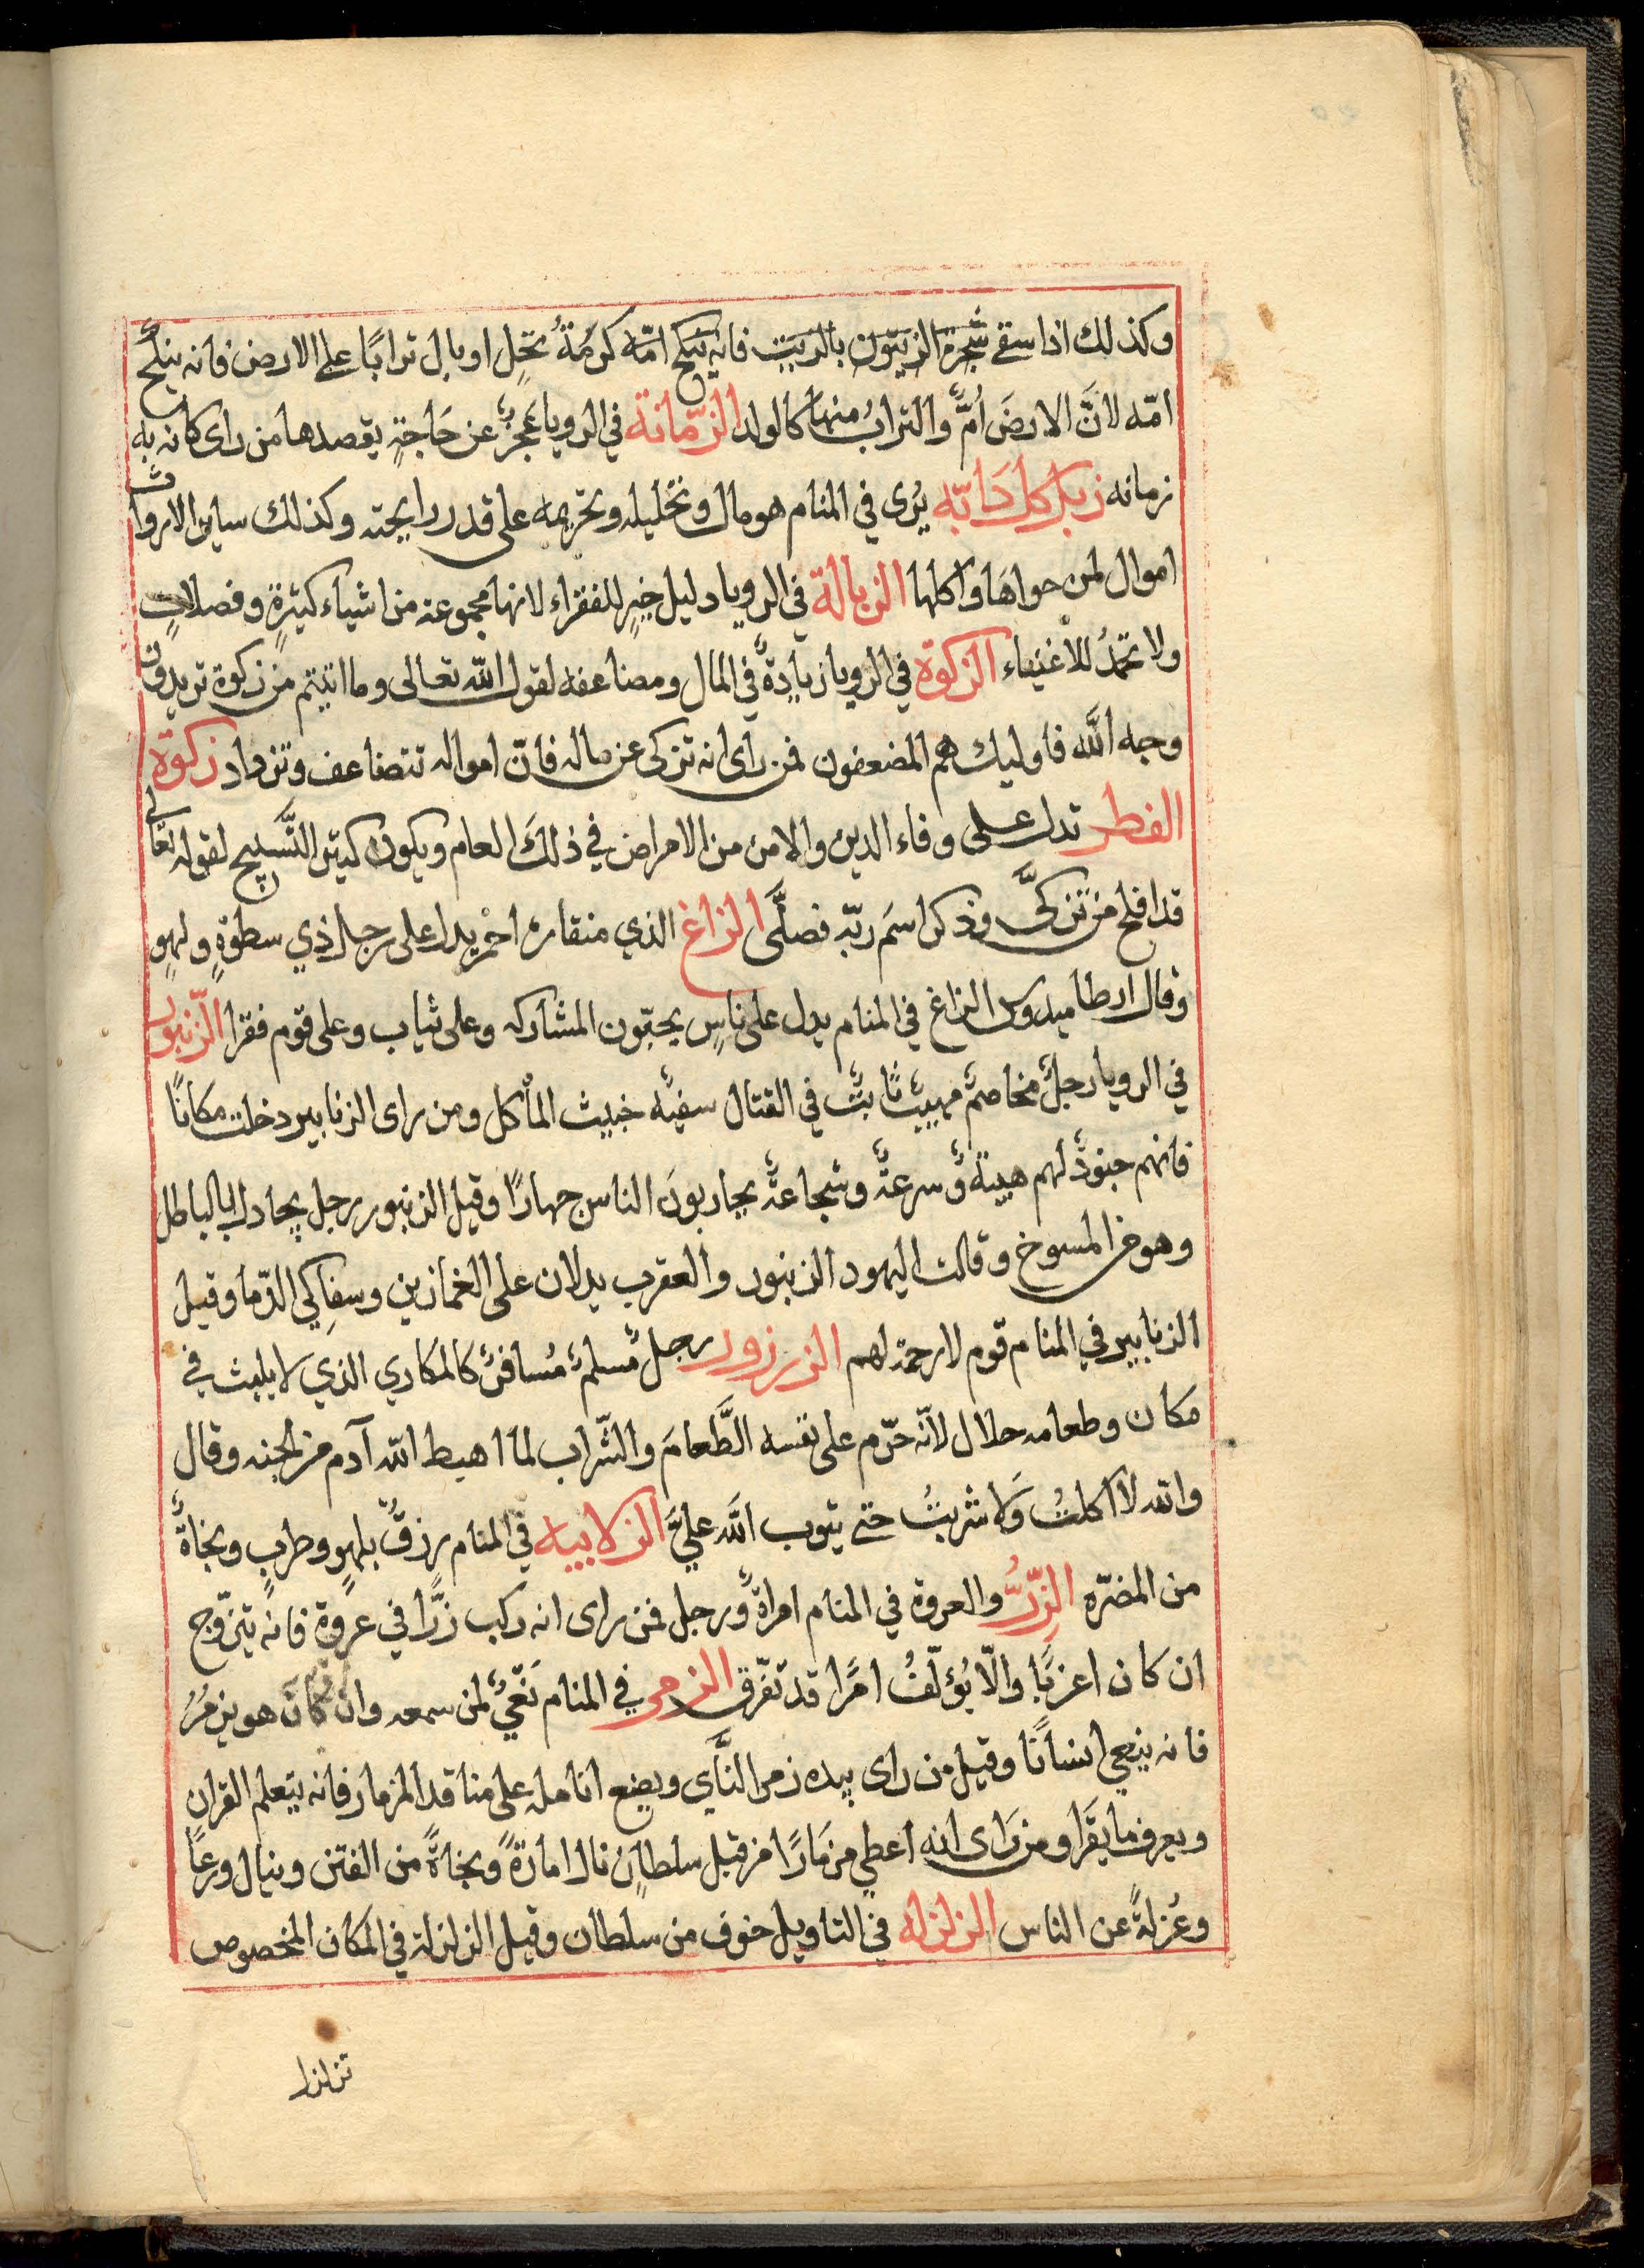 وكذلك اذا سقى شجرة الزيتون بالزيت فانه ينكح امّه كرمةُ نخلٍ او بال ترابًا على الارض فانه ينكح
امّه لانَّ الارضَ اُمٌّ والترابُ منها كالولد الزّمانة في الرويا عَجزٌ عن حَاجةٍ يقصدها من راى كانه به
زمانه زبل كل دَابّه يُرى في المنام هو مال وتحليله وتحريمه على قدر رايحته وكذلك ساير الارواث
اموال لمن حواهَا واكلها الزبالة في الرويا دليل خيرٍ للفقراء لانها مجموعه من اشياء كثيرةٍ وفصلاتٍ
ولا تحمدُ للأغنياء الزكوة في الرويا زيادةٌ في المال ومضاعفه لقول الله تعالى وما اتيتم من زكوة تريدون
وجه الله فاوليك هم المضعفون فمن راى انه تزكى عن ماله فانّ امواله تتضاعف وتزداد زكوة
الفطر تدل على وفاء الدين والامن من الامراض في ذلكَ العام ويكون كثير التَّسبيح لقوله تعالى
قد افلح من تزكىَّ وذكر اسمَ ربّه فصلَّى الزاغ الذي منقاره احمر يدل على رجل ذي سطوةٍ ولهوٍ
وقال ارطاميدورس الزاغ في المنام يدل على ناسٍ يحبّون المشاركه وعلى ثياب وعلى قوم فقرا الزّنبور
في الرويا رجلٌ مخاصمٌ مهيبٌ ثابتٌ في القتال سفيّه خبيث المأكل ومن راى الزنابير دخلت مكانًا
فانهم جنودٌ لهم هيبةٌ وسرعةٌ وشجاعةٌ يحاربونَ الناس جهارًا وقيل الزنبور رجل يجادل بالباطل
وهو من المسوخ وقالت اليهود الزنبور والعقرب يدلان على الغمازين وسفاكي الدّما وقيل
الزنابير في المنام قوم لا رحمة لهم الزرزور رجلٌ مُسلمٌ مُسافرٌ كالمكاري الذي لا يلبث في
مَكان وطعامه حلال لأنّه حَرّم على نفسه الطَّعامَ والشّراب لما اهبط الله آدم من الجنه وقال
والله لا اكلتُ وَلا شربتُ حتى يتوب الله عليَّ الزلابيه في المنام رزقٌ بلهوٍ وطربٍ ونجاةٌ
من المضرّه الزِّرُّ والعروة في المنام امراةٌ ورجل فمن راى انه ركب زرًّا في عروة فانه يتزوّج
ان كان اعزبًا والّا يُؤلّفُ امرًا قد تفرّق الزمر في المنام نَعْيٌ لمن سمعه وان كانَ هو يزمُرُ
فانه ينعي انسانًا وقيل من راى بيده زمر النَّاي ويضع انامله على مناقد المزمار فانه يتعلم القران
ويعرف ما يقَرا ومن رَاى انه اعطي مزمَارًا من قبل سلطانٍ نال امارةً ونجاةً من الفتن وينال ورعًا
وعُزلةً عن الناس الزلزله في التاويل خوف من سلطان وقيل الزلزلة في المكان المخصوص
تزلزل